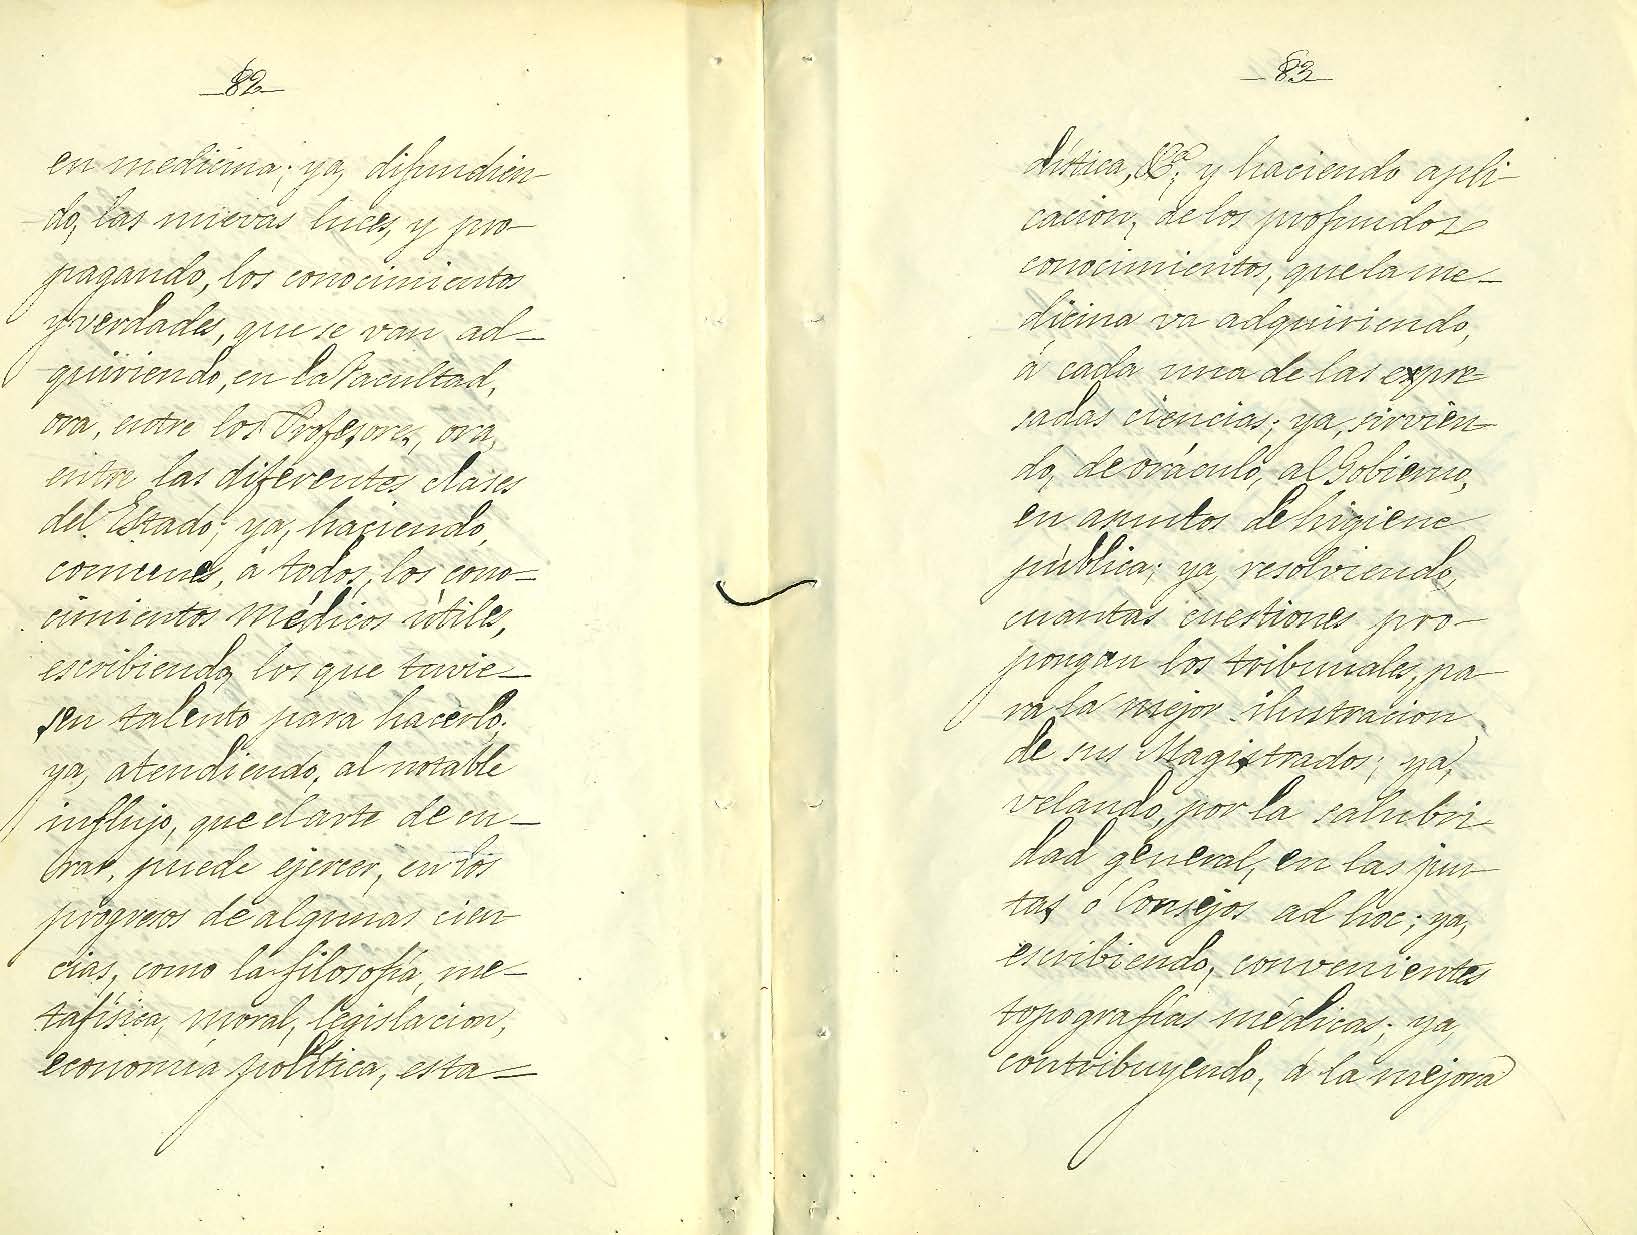 82
en medicina; ya, difundien-
do, las nuevas luces, y pro-
pagando, los conocimientos
y verdades, que se van ad-
quiriendo, en la Facultad,
ora, entre los Profesores, ora,
entre las diferentes clases
del Estado; ya, haciendo,
comunes, á todos, los cono-
cimientos médicos útiles,
escribiendo, los que tuvie-
sen talento para hacerlo;
ya, atendiendo, al notable
influjo, que el arte de cu-
rar, puede ejercer, en los
progresos de algunas cien
cias, como la filosofía, me-
tafísica, moral, legislacion,
economía política, esta-
83
dística, &ª; y haciendo apli-
cacion, de los profundos
conocimientos, que la me-
dicina va adquiriendo,
á cada una de las expre-
sadas ciencias; ya, sirvien-
do, de oráculo, al Gobierno,
en asuntos de higiene
pública; ya, resolviendo,
cuantas cuestiones pro-
pongan los tribunales, pa
ra la mejor ilustracion
de sus Magistrados; ya,
velando, por la salubri-
dad general, en las jun-
tas ó Consejos ad hoc; ya,
escribiendo, convenientes
topografías médicas; ya,
contribuyendo, á la mejora